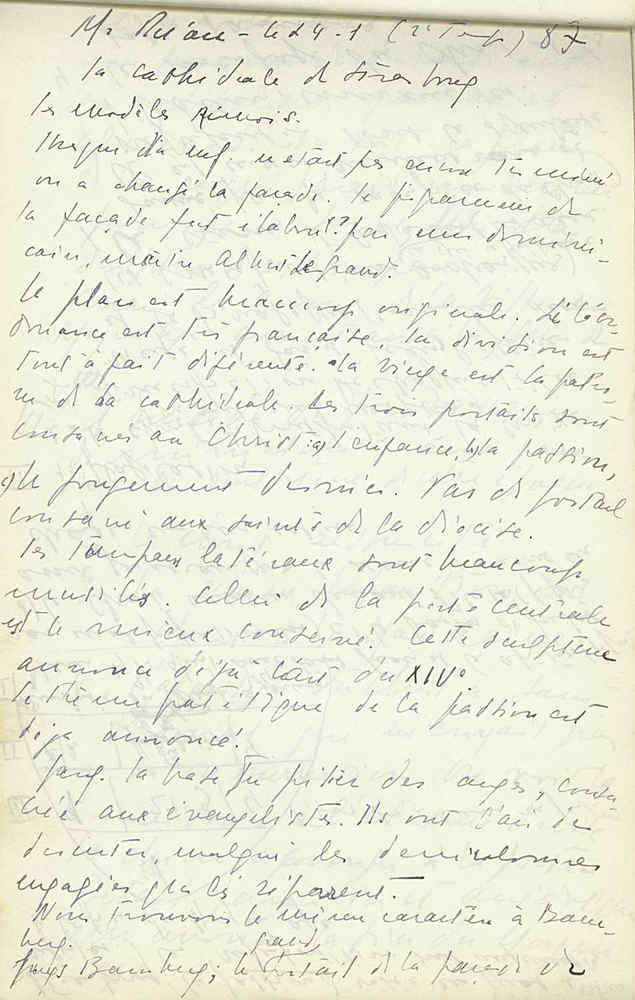 Mr Réau - le 24-1 (2e Temp) 87
la cathédrale de Strasbourg
les modèles Rémois.
n'était pas encore terminé
on a changé la façade. le programme de
la façade fut élaboré? par un domini-
cain, maître Albert Legrand.
le plan est beaucoup originale. L'or-
donance est très française. la division est
tout à fait diférente. la Vierge est la patro-
ne de la cathédrale. Les trois portails sont
consacrés au Christ: a) l'enfance, b) la passion,
c) le jougement dernier. Pas de portail
consacré aux saints de la diocèse.
les timpans latéraux sont beaucoup
mutilés. Celui de la porte centrale
est le mieux conservé. Cette sculpture
annonce déjà l'art du XIVe
le thème patétique de la passion est
déjà annoncé.
la base du pilier des anges, consa-
crée aux évangelistes. Ils ont l'air de
discuter, malgré les demicolonnes
engagées qui les séparent.
Nous trouvons le même caractère à Bam-
berg.
Bamberg; le grand portail de la façade de